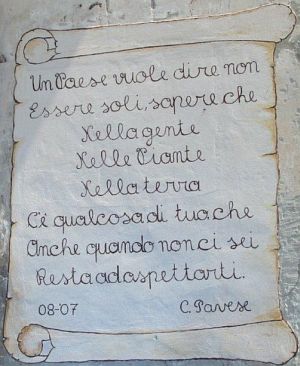 Un Paese vuole dire non
Essere soli, sapere che
Nella gente
Nelle Piante
Nella terra
C'è qualcosa di tua che
Anche quando non ci sei
Resta ad aspettarti.
08-07 C. Pavese